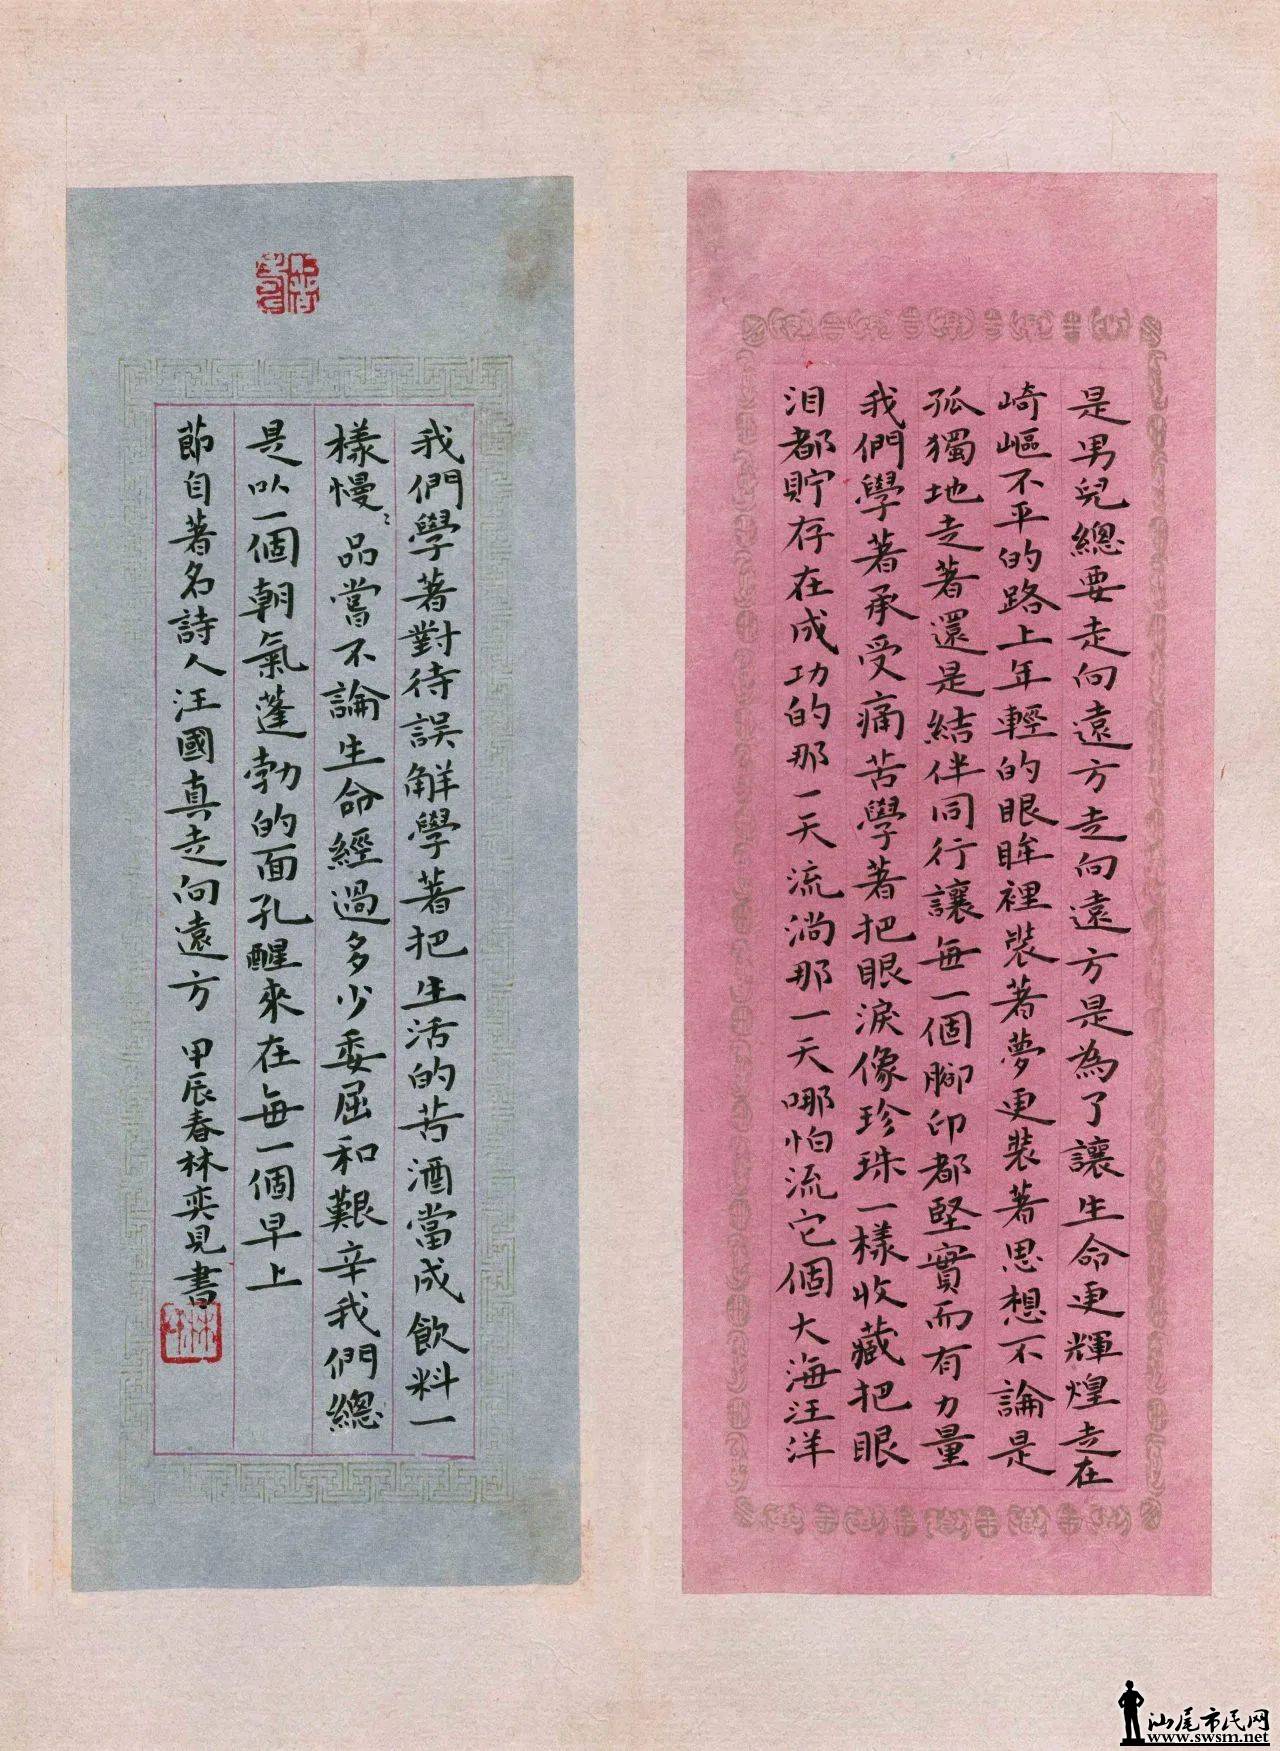 是男兒總要走向遠方走向遠方是為了讓生命更輝煌走在
崎嶇不平的路上年輕的眼眸裡裝著夢更裝著思想不論是
孤獨地走著還是結伴同行讓每一個腳印都堅實而有力量
我們學著承受痛苦學著把眼淚像珍珠一樣收藏把眼
泪都貯存在成功的那一天流淌那一天哪怕流它個大海汪洋
我們學著對待誤解學著把生活的苦酒當成飲料一
樣慢〻品嘗不論生命經過多少委屈和艱辛我們總
是以一個朝氣蓬勃的面孔醒來在每一個早上
節自著名詩人汪國真走向遠方 甲辰春林奕見書
汕尾市民网
www.swsm.net